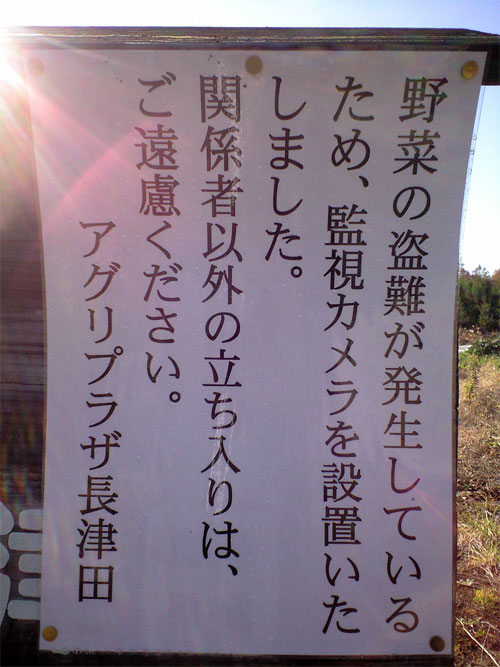 野菜の盗難が発生している
ため、監視カメラを設置いた
しました。
関係者以外の立ち入りは、
ご遠慮ください。
アグリプラザ長津田